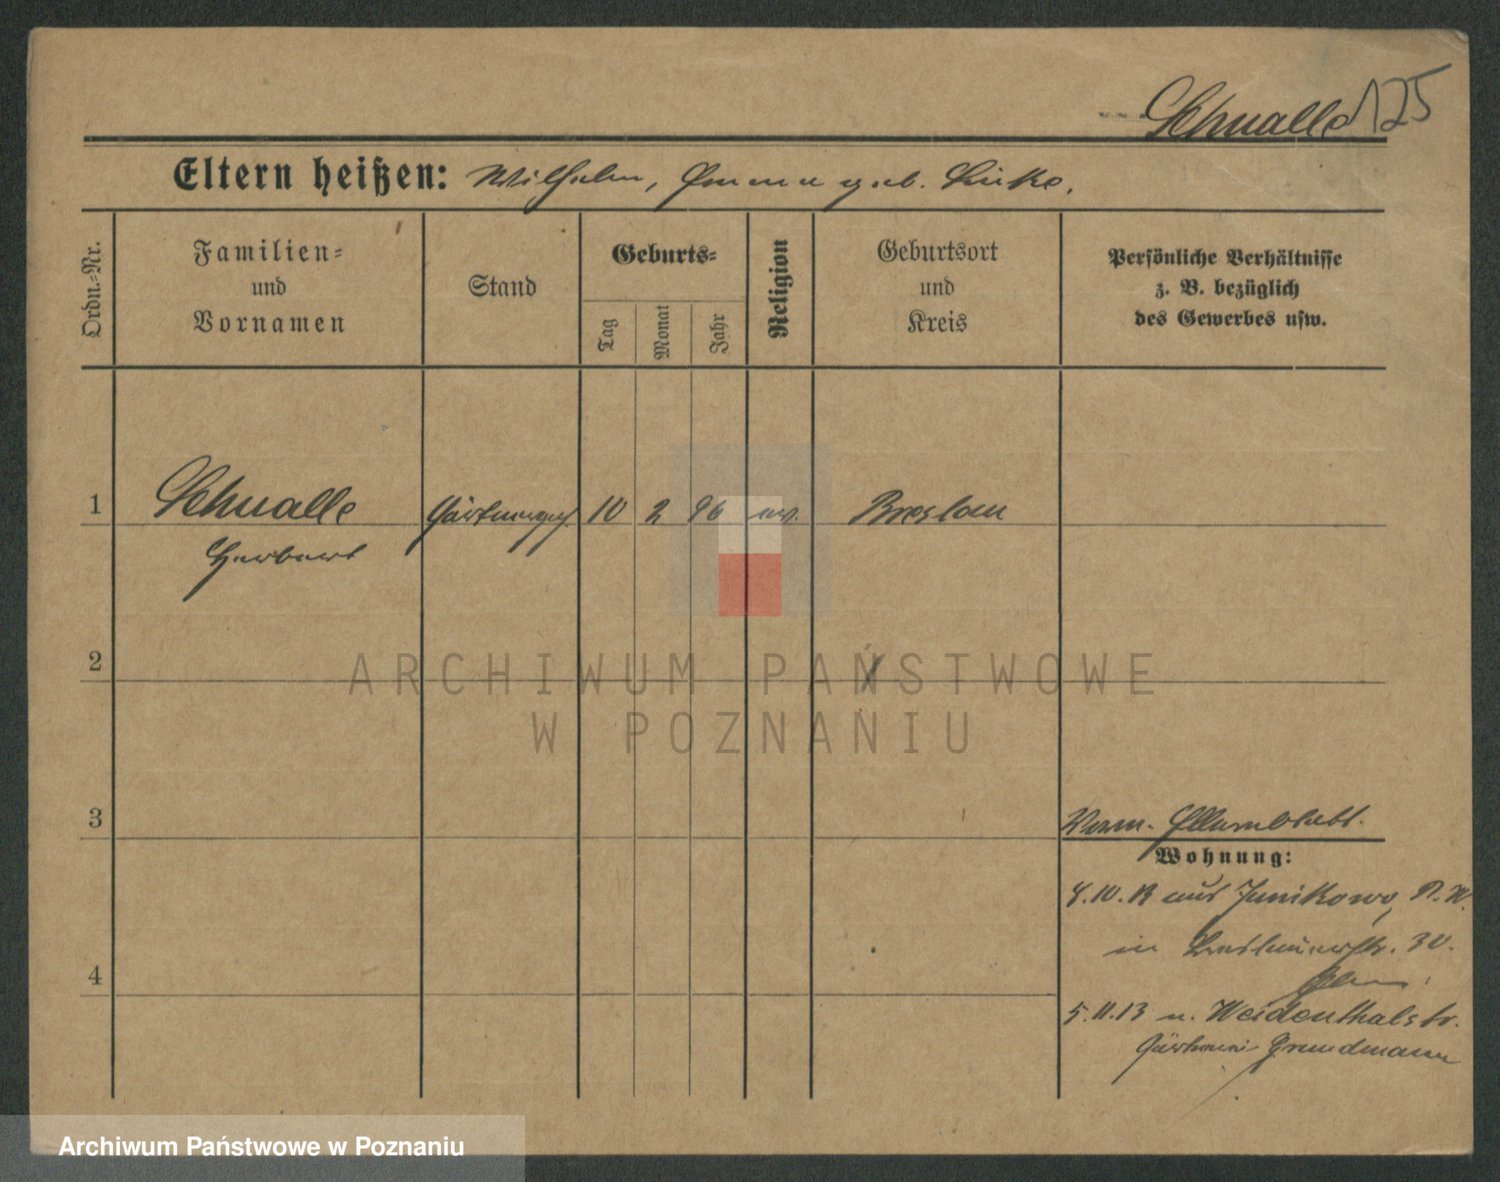 Schnalle 125
Eltern heißen: Wilhelm, Emma geb.
Ordn.-Nr.
Familien-
und
Vornamen
Stand
Geburts-
Tag
Monat
Jahr
Religion
Geburtsort
und
Kreis
Persönliche Verhältnisse
z. B. bezüglich
des Gewerbes usw.
1 Schnalle 10 2 96 ev. Breslau
Herbert
2
3
4
Wohnung:
8.10.13 aus Junikowo, P. W.
in 30.
5.11.13 n. Weidenthalstr.
Gärtnerei Grundmann
ARCHIWUM PAŃSTWOWE
W POZNANIU
Archiwum Państwowe w Poznaniu